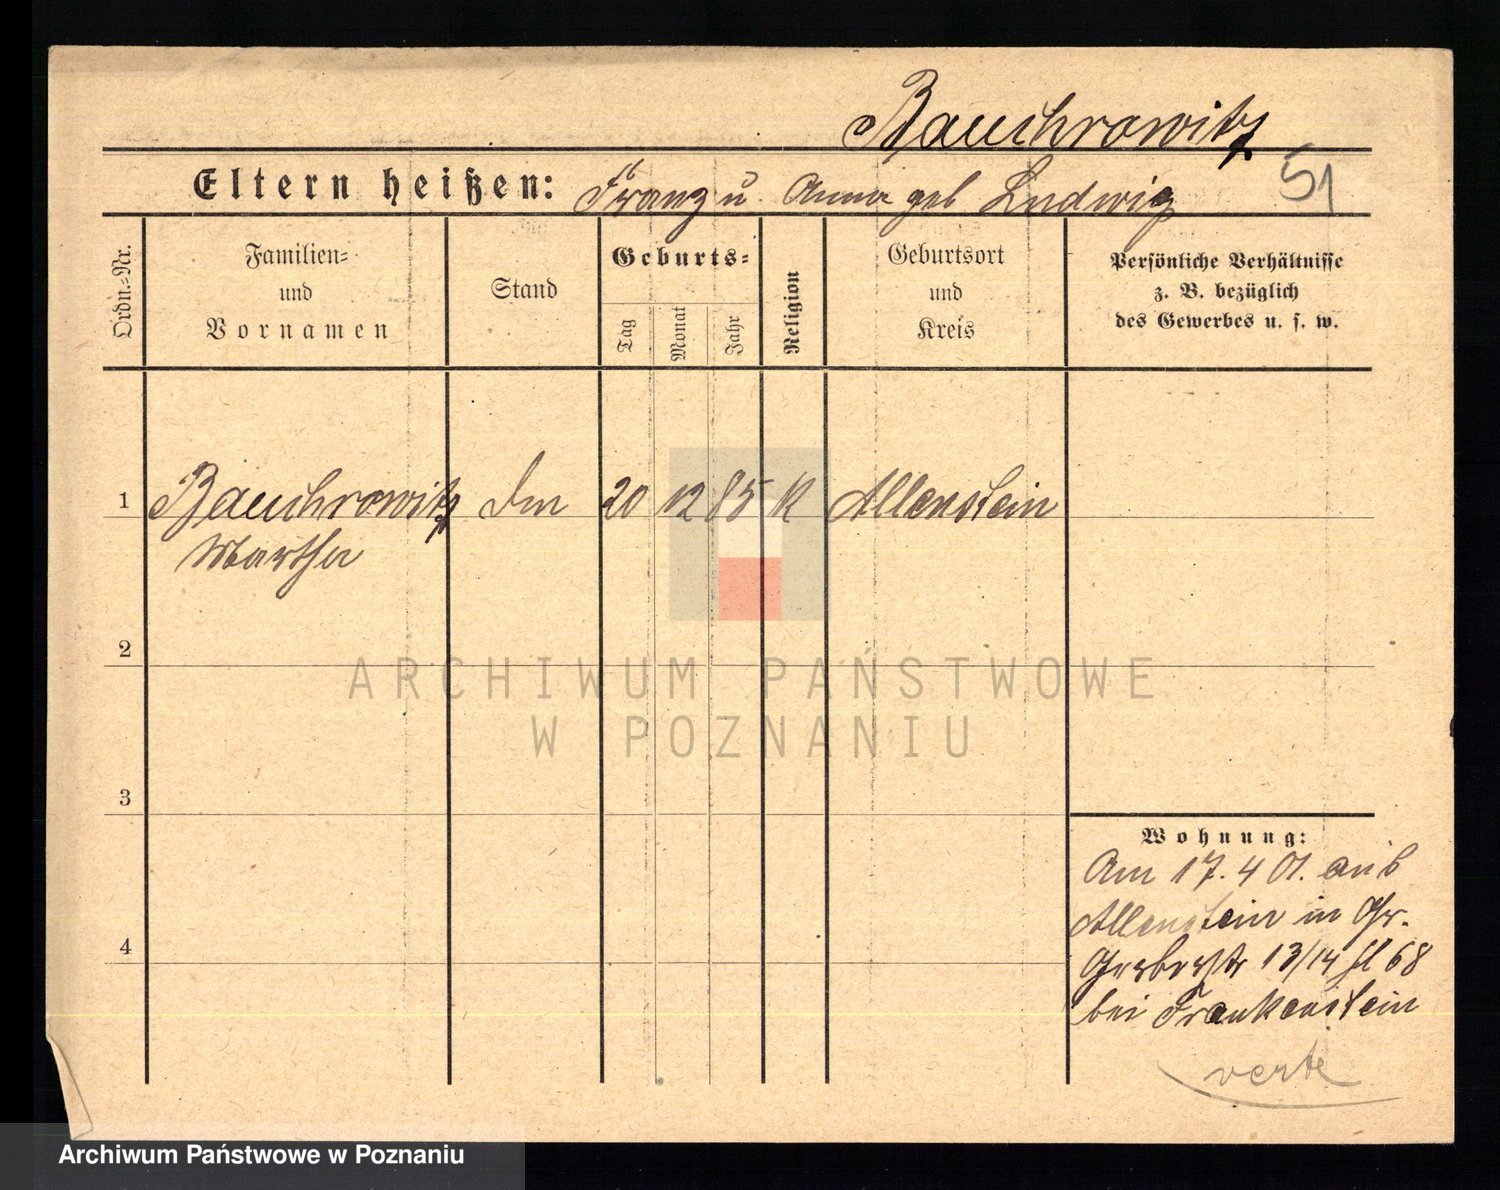 Bauchrowitz
Eltern heißen: Franz u Anna geb Ludwig 51
Ordn.-Nr.
Familien-
und
Vornamen
Stand
Geburts-
Tag
Monat
Jahr
Religion
Geburtsort
und
Kreis
Persönliche Verhältnisse
z. B. bezüglich
des Gewerbes u. s. w.
1 Bauchrowitz 20 12 85 K Allenstein
Martha
2
ARCHIWUM PAŃSTWOWE
W POZNANIU
3
Wohnung:
Am 17. 4 01. aus
Allenstein in Gr.
Gerberstr 13/14 68
4
bei Frankenstein
verte
Archiwum Państwowe w Poznaniu